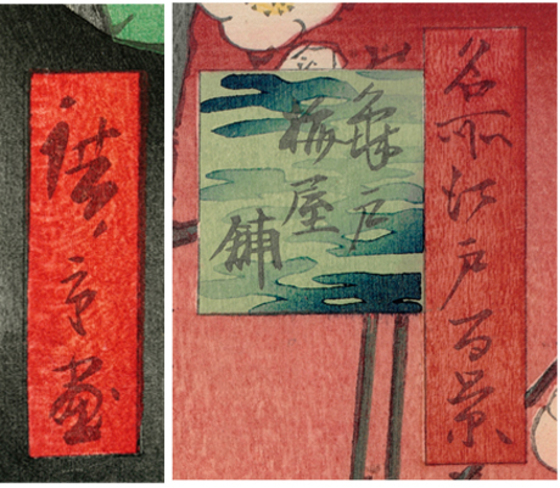 名所江戸百景
亀戸
梅屋
舗
廣重画